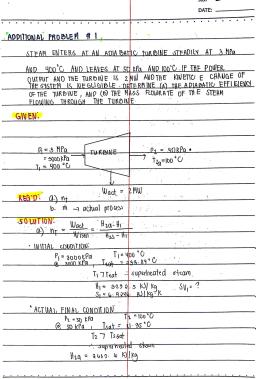 DATE:
ADDITIONAL PROBLEM # 1.
STEAM ENTERS AT AN ADIABATIC TURBINE STEADILY AT 3 MPa
AND 400°C AND LEAVES AT 50 kPa AND 100°C. IF THE POWER
OUTPUT AND THE TURBINE IS 2MW AND THE KINETIC E CHANGE OF
THE SYSTEM IS NEGLIGIBLE. DETERMINE (A) THE ADIABATIC EFFICIENCY
OF THE TURBINE, AND (B) THE MASS FLOWRATE OF THE STEAM
FLOWING THROUGH THE TURBINE.
GIVEN:
P1 = 3 MPa
= 3000 kPa
T1 = 400°C
TURBINE
P2 = 50 kPa
T2a = 100°C
Wact = 2MW
REQ'D: a) nT
b. ṁ → actual process
SOLUTION:
a) nT = Wact / Wisen = H2a-H1 / H2s-H1
• INITIAL CONDITION:
P1 = 3000 kPa T1 = 400°C
@ 3000 kPa, Tsat =
T1 > Tsat ∴ superheated steam
SV1 = ?
• ACTUAL FINAL CONDITION
P2 = 50 kPa T2 = 100°C
@ 50 kPa, Tsat =
T2 > Tsat
∴ superheated steam